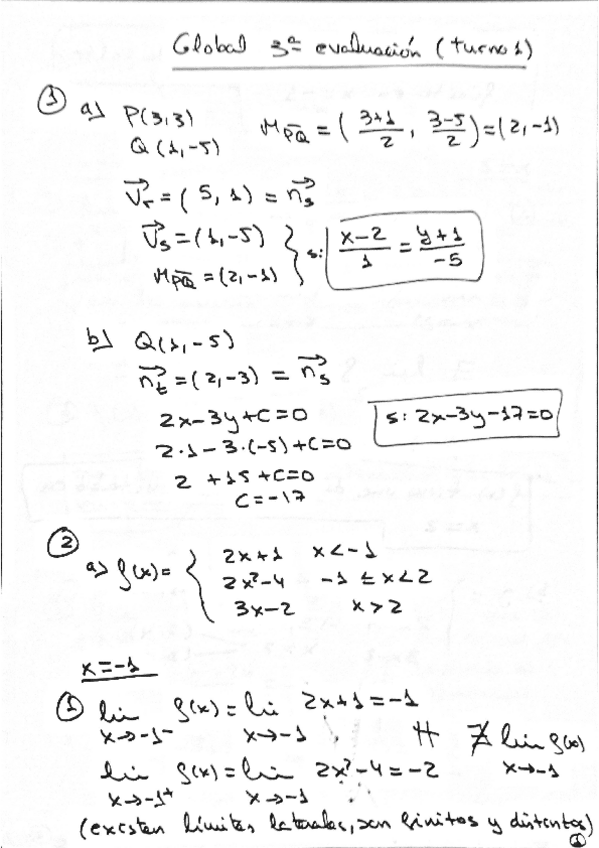 Global 3ª evaluación (turno 1)
① a) P(3,3)
Q(1,-5)
M_PQ = (3+1/2, 3-5/2) = (2,-1)
v_r = (5,1) = n_s
v_s = (1,-5)
M_PQ = (2,-1)
s: x-2/1 = y+1/-5
b) Q(1,-5)
n_t = (2,-3) = n_s
2x-3y+C=0
2·1-3·(-5)+C=0
2+15+C=0
C=-17
s: 2x-3y-17=0
②
a) f(x) = { 2x+1 x<-1
2x²-4 -1≤x<2
3x-2 x>2
x=-1
① lim f(x) = lim 2x+1 = -1
x→-1⁻ x→-1
∄ lim f(x)
x→-1
lim f(x) = lim 2x²-4 = -2
x→-1⁺ x→-1
(existen límites laterales, son finitos y distintos)
①